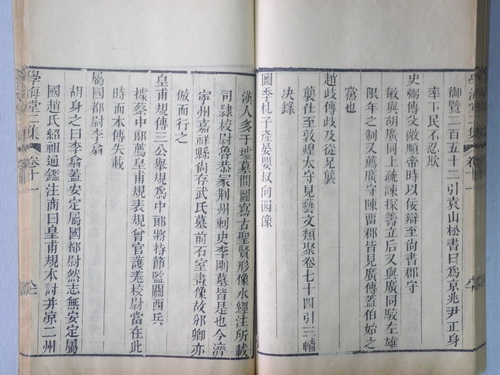 御覽二百五十二引袁山松書曰為京兆尹正身
率下民不忍欺
史㢸傳交敞順帝時以佞辯至尚書郡守
敏與胡廣同上疏諫探籌立后又與廣同駮左雄
限年之制又薦廣守陳畱郡皆見廣傳蓋伯始之
黨也
趙歧傳歧及從兄襲
襲仕至敦煌太守見藝文類聚卷七十四引三輔
決錄
圖季札子產晏嬰叔向四像
漢人多于墟墓間圖寫古聖賢形像水經注所載
司隷校尉魯恭冢荆州刺史李剛墓皆是也今濟
寧州嘉祥縣尚存武氏墓前石室畫像故邠卿亦
倣而行之
皇甫規傳三公舉規為中郎將持節監關西兵
據蔡中郎薦皇甫規表規曾官護羌校尉當在此
時而本傳失載
屬國都尉李翕
胡身之曰李翕蓋安定屬國都尉然志無安定屬
國趙氏紹祖通鑑注商曰皇甫規本討并凉二州
學海堂二集
卷十一